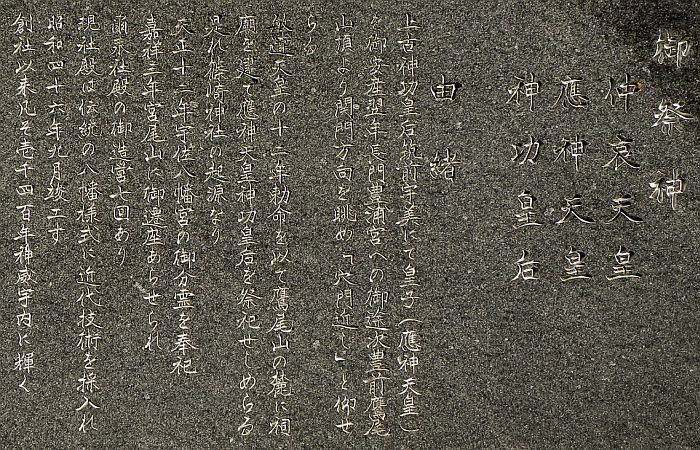 御祭神
仲哀天皇
應神天皇
神功皇后
由緒
上古神功皇后筑前宇美にて皇子(應神天皇)
を御安産翌年長門豊浦宮への御途次豊前鷹尾
山頂より関門方司を眺め「穴門近し」と仰せ
らる
敏達天皇の十二年勅命を以て鷹尾山の麓に祠
廟を建て應神天皇神功皇后を祭祀せしめらる
是れ篠崎神社の起源なり
天正十二年宇佐八幡宮の御分霊を奉祀
嘉祥三年宮尾山に御遷座あらせられ
爾来社殿の御造営七回あり
現社殿は伝統の八幡様式に近代技術を採入れ
昭和四十六年九月竣工す
創社以来凡そ壱千四百年神威宇内に輝く